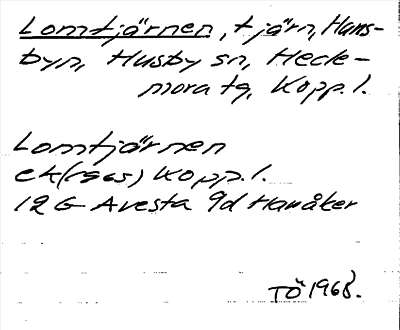 Lomtjärnen, tjärn, Hans-
byn, Husby sn, Hede-
mora tg, Kopp. l.
Lomtjärnen
ek(1965) Kopp. l.
12 G Avesta 9d Hanåker
TÖ 1968.